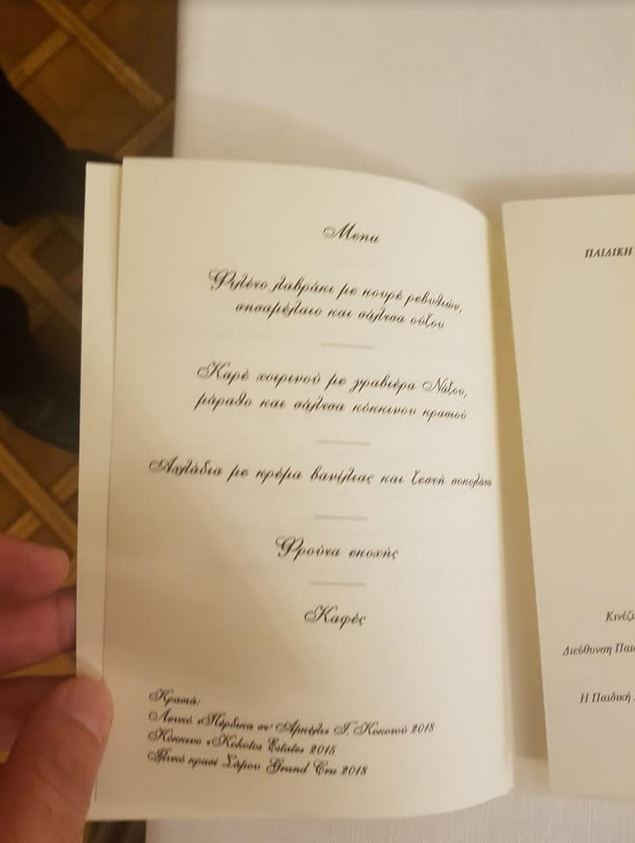 Menu
Φιλέτο λαβράκι με πουρέ ρεβυθιών,
σησαμέλαιο και σάλτσα ούζου
Καρέ χοιρινού με γραβιέρα Νάξου,
μάραθο και σάλτσα κόκκινου κρασιού
Αχλάδια με κρέμα βανίλιας και ζεστή σοκολάτα
Φρούτα εποχής
Καφές
Κρασιά:
Λευκό «Πέρδικα σε' Αμπέλι» Γ. Κοκοτού 2018
Κόκκινο «Kokotos Estate» 2015
Γλυκό κρασί Σάμου Grand Cru 2018
ΠΑΙΔΙΚΗ
Διεύθυνση
Η Παιδική